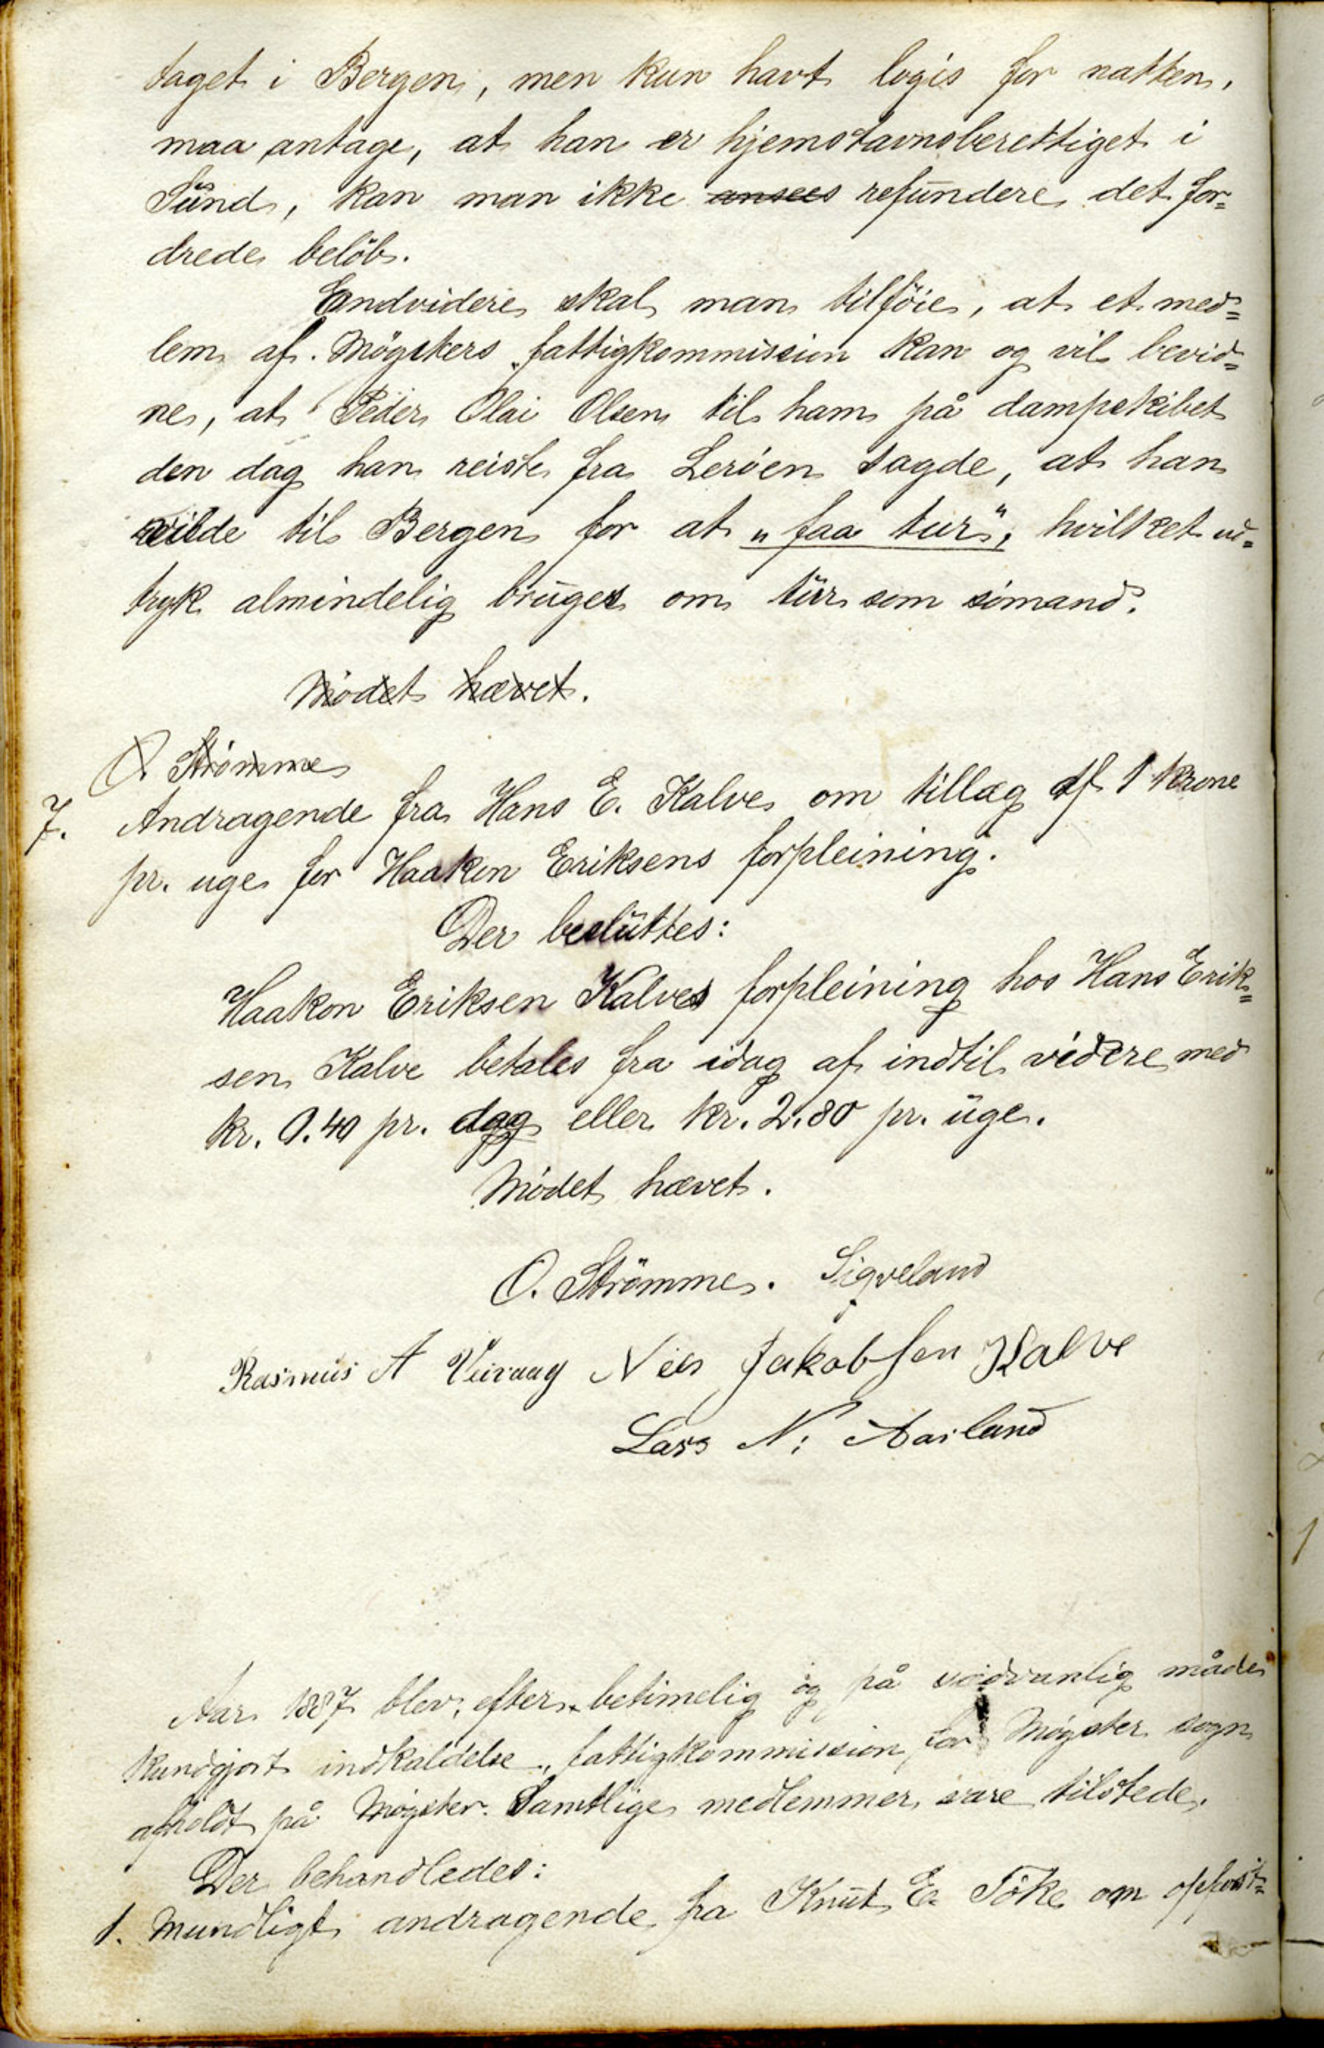 taget i Bergen, men kun havt logis for natten,
maa antage, at han er hjemstavnsberettiget i
Sund, kan man ikke ansees refundere det for=
drede belöb.
Endvidere skal man tilföie, at et med=
lem af Mögsters fattigkommission kan og vil bevid=
ne, at Peder Olai Olsen til ham på dampskibet
den dag han reiste fra Leröen sagde, at han
vilde til Bergen for at "faa tur", hvilket ud=
tryk almindelig bruges om tur som sömand.
Mödet hævet.
O. Strömme
7. Andragende fra Hans E. Kalve om tillæg af 1 krone
pr. uge for Haakon Eriksens forpleining.
Der besluttes:
Haakon Eriksen Kalves forpleining hos Hans Erik=
sen Kalve betales fra idag af indtil videre med
kr. 0.40 pr. dag eller kr. 2.80 pr. uge.
Mödet hævet.
O. Strömme. Sigveland
Rasmus A Viivaag Nils Jakobsen Kalve
Lars N: Aarland
Aar 1887 blev, efter betimelig og på sædvanlig måde
kundgjort indkaldelse, fattigkommission for Mögster sogn
afholdt på Mögster. Samtlige medlemmer vare tilstede.
Der behandledes:
1. Mundligt andragende fra Knut E. Töke om opfost=